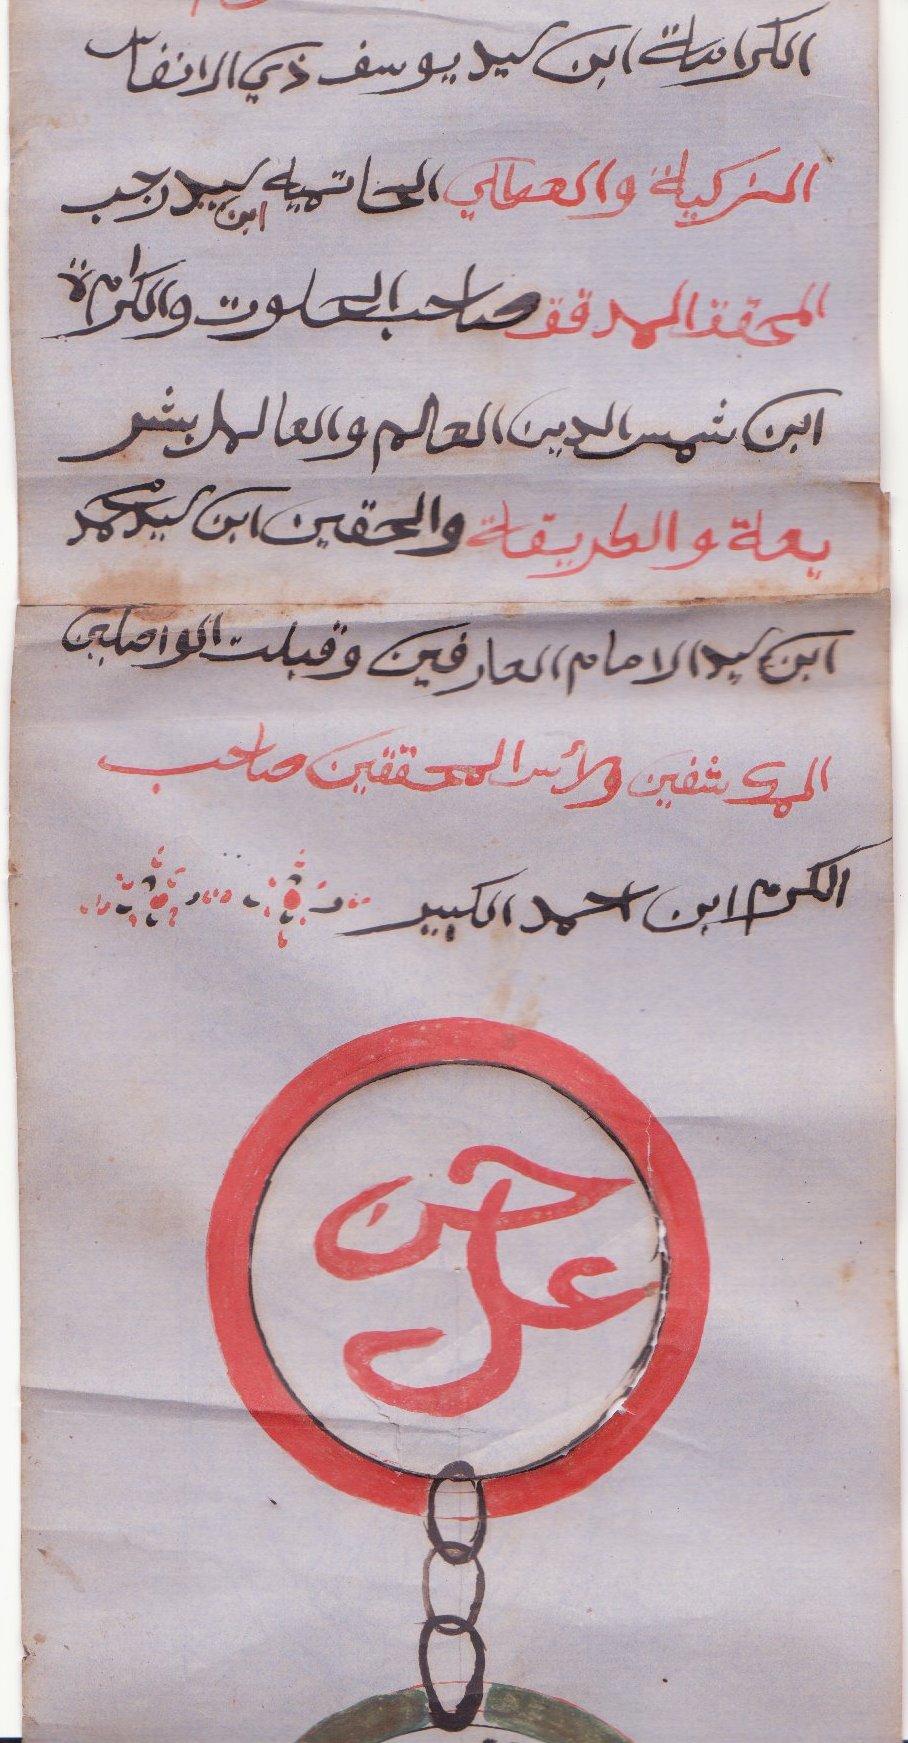 الكرامة ابن سيد يوسف ذي الانفاس
الزكية والعطاي الحاتمية ابن سيد رجب
المحقق المدقق صاحب الخلوت والكرامة
ابن شمس الدين العالم والعامل بشر
يعة والطريقة والحقين ابن سيد محمد
ابن سيد الامام العارفين وقبلت الواصلين
المكاشفين ولأس المحققين صاحب
الكرم ابن احمد الكبير
حسن
علي